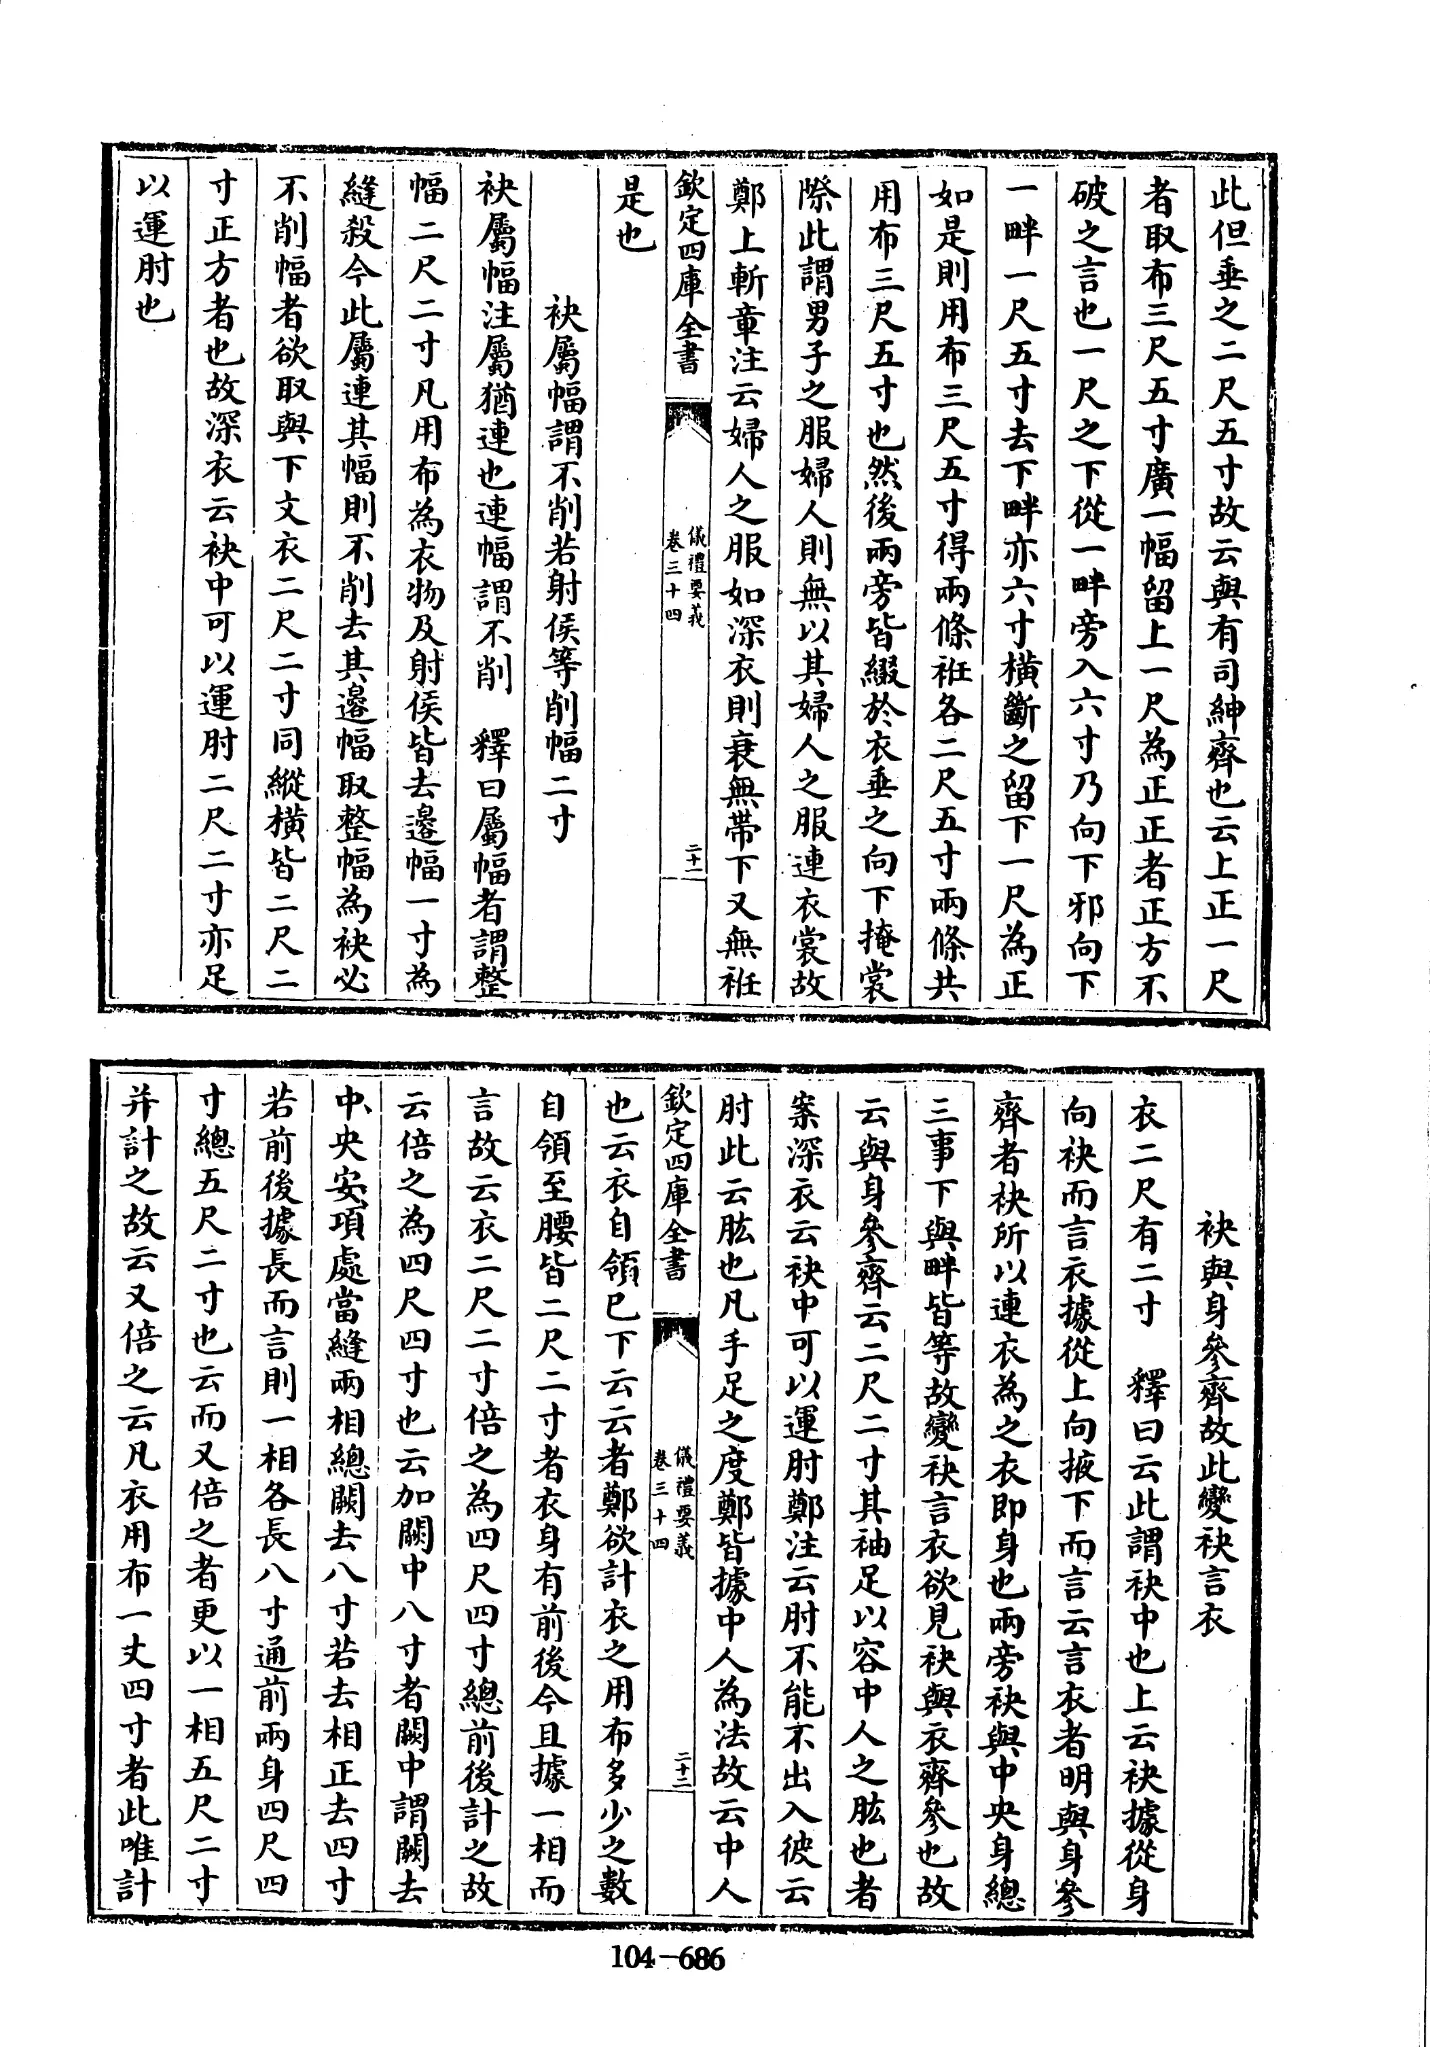 此但垂之二尺五寸故云與有司紳齊也云上正一尺
者取布三尺五寸廣一幅留上一尺為正正者正方不
破之言也一尺之下從一畔旁入六寸乃向下邪向下
一畔一尺五寸去下畔亦六寸橫斷之留下一尺為正
如是則用布三尺五寸得兩條衽各二尺五寸兩條共
用布三尺五寸也然後兩旁皆綴於衣垂之向下掩裳
際此謂男子之服婦人則無以其婦人之服連衣裳故
鄭上斬章注云婦人之服如深衣則衰無帶下又無衽
欽定四庫全書
儀禮要義
卷三十四
二十一
是也
袂屬幅謂不削若射侯等削幅二寸
袂屬幅注屬猶連也連幅謂不削 釋曰屬幅者謂整
幅二尺二寸凡用布為衣物及射侯皆去邊幅一寸為
縫殺今此屬連其幅則不削去其邊幅取整幅為袂必
不削幅者欲取與下文衣二尺二寸同縱橫皆二尺二
寸正方者也故深衣云袂中可以運肘二尺二寸亦足
以運肘也
袂與身參齊故此變袂言衣
衣二尺有二寸 釋曰云此謂袂中也上云袂據從身
向袂而言衣據從上向掖下而言云言衣者明與身參
齊者袂所以連衣為之衣即身也兩旁袂與中央身總
三事下與畔皆等故變袂言衣欲見袂與衣齊參也故
云與身參齊云二尺二寸其袖足以容中人之肱也者
案深衣云袂中可以運肘鄭注云肘不能不出入彼云
肘此云肱也凡手足之度鄭皆據中人為法故云中人
欽定四庫全書
儀禮要義
卷三十四
二十二
也云衣自領已下云云者鄭欲計衣之用布多少之數
自領至腰皆二尺二寸者衣身有前後今且據一相而
言故云衣二尺二寸倍之為四尺四寸總前後計之故
云倍之為四尺四寸也云加闕中八寸者闕中謂闕去
中央安項處當縫兩相總闕去八寸若去相正去四寸
若前後據長而言則一相各長八寸通前兩身四尺四
寸總五尺二寸也云而又倍之者更以一相五尺二寸
并計之故云又倍之云凡衣用布一丈四寸者此唯計
104-686